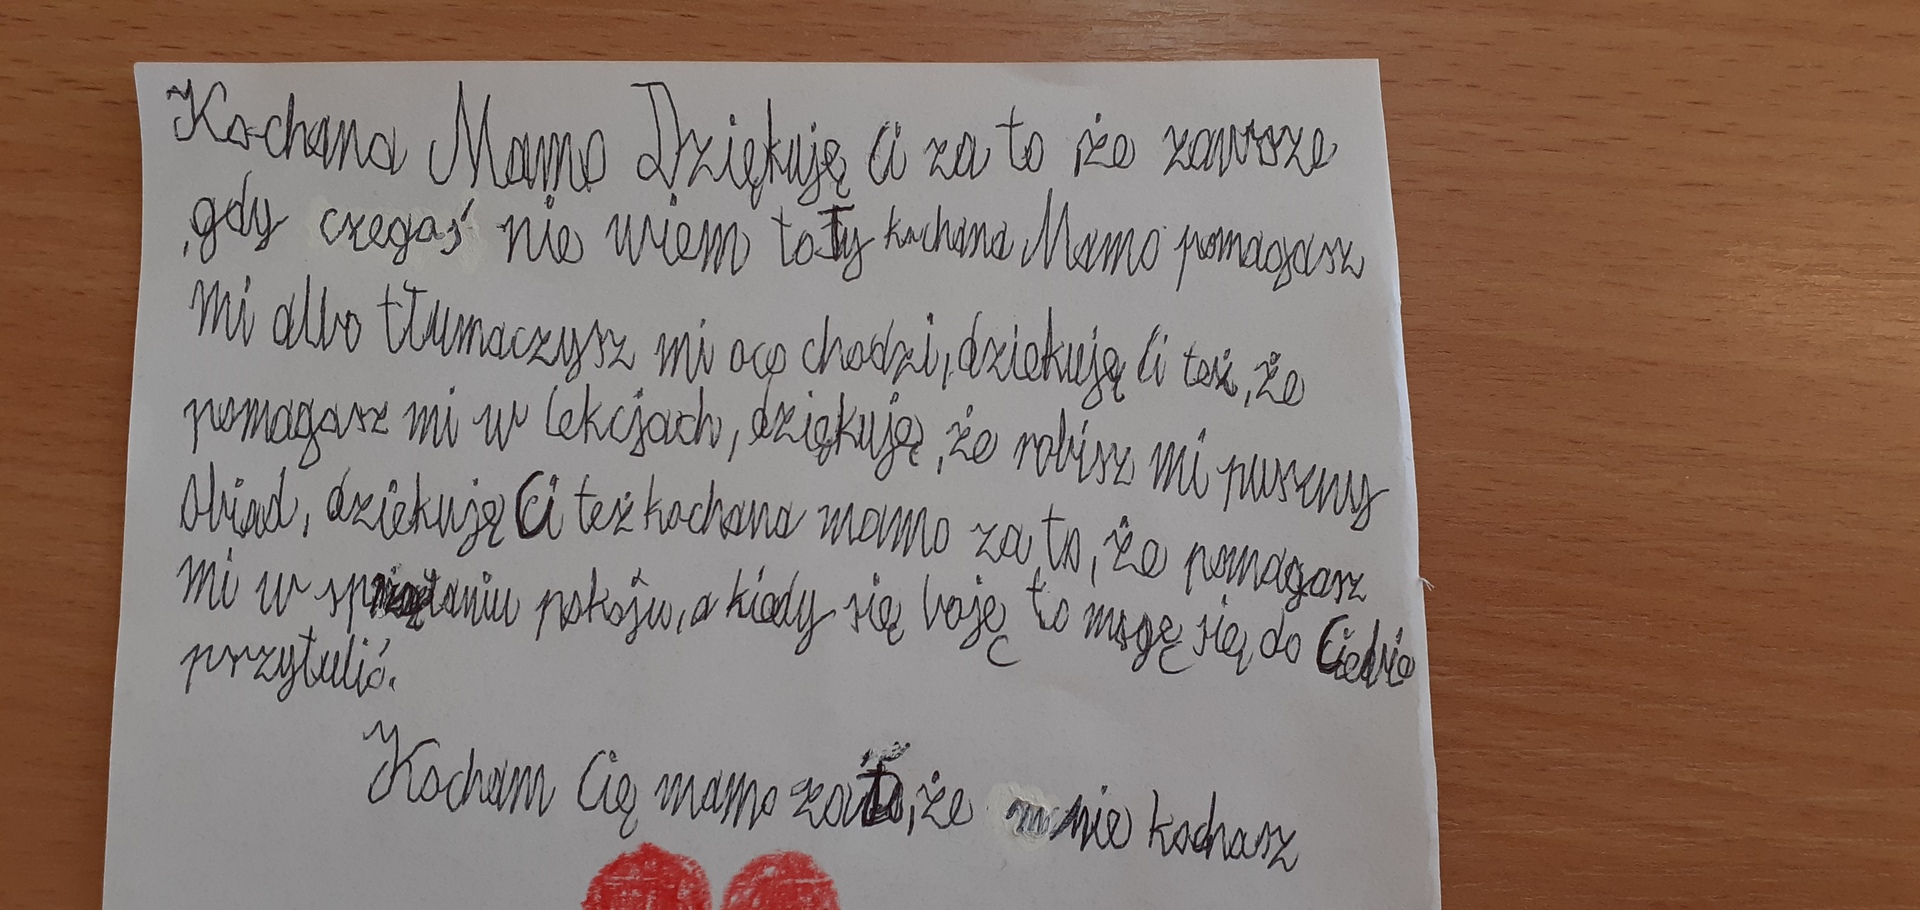 Kochana Mamo Dziękuję Ci za to że zawsze
gdy czegoś nie wiem to Ty kochana Mamo pomagasz
mi albo tłumaczysz mi oco chodzi, dziękuję Ci też, że
pomagasz mi w lekcjach, dziękuję, że robisz mi puszny
obiad, dziękuję Ci też kochana mamo za to, że pomagasz
mi w sprzątaniu pokoju, a kiedy się boję to mogę się do Ciebie
przytulić.
Kocham Cię mamo za to, że mnie kochasz